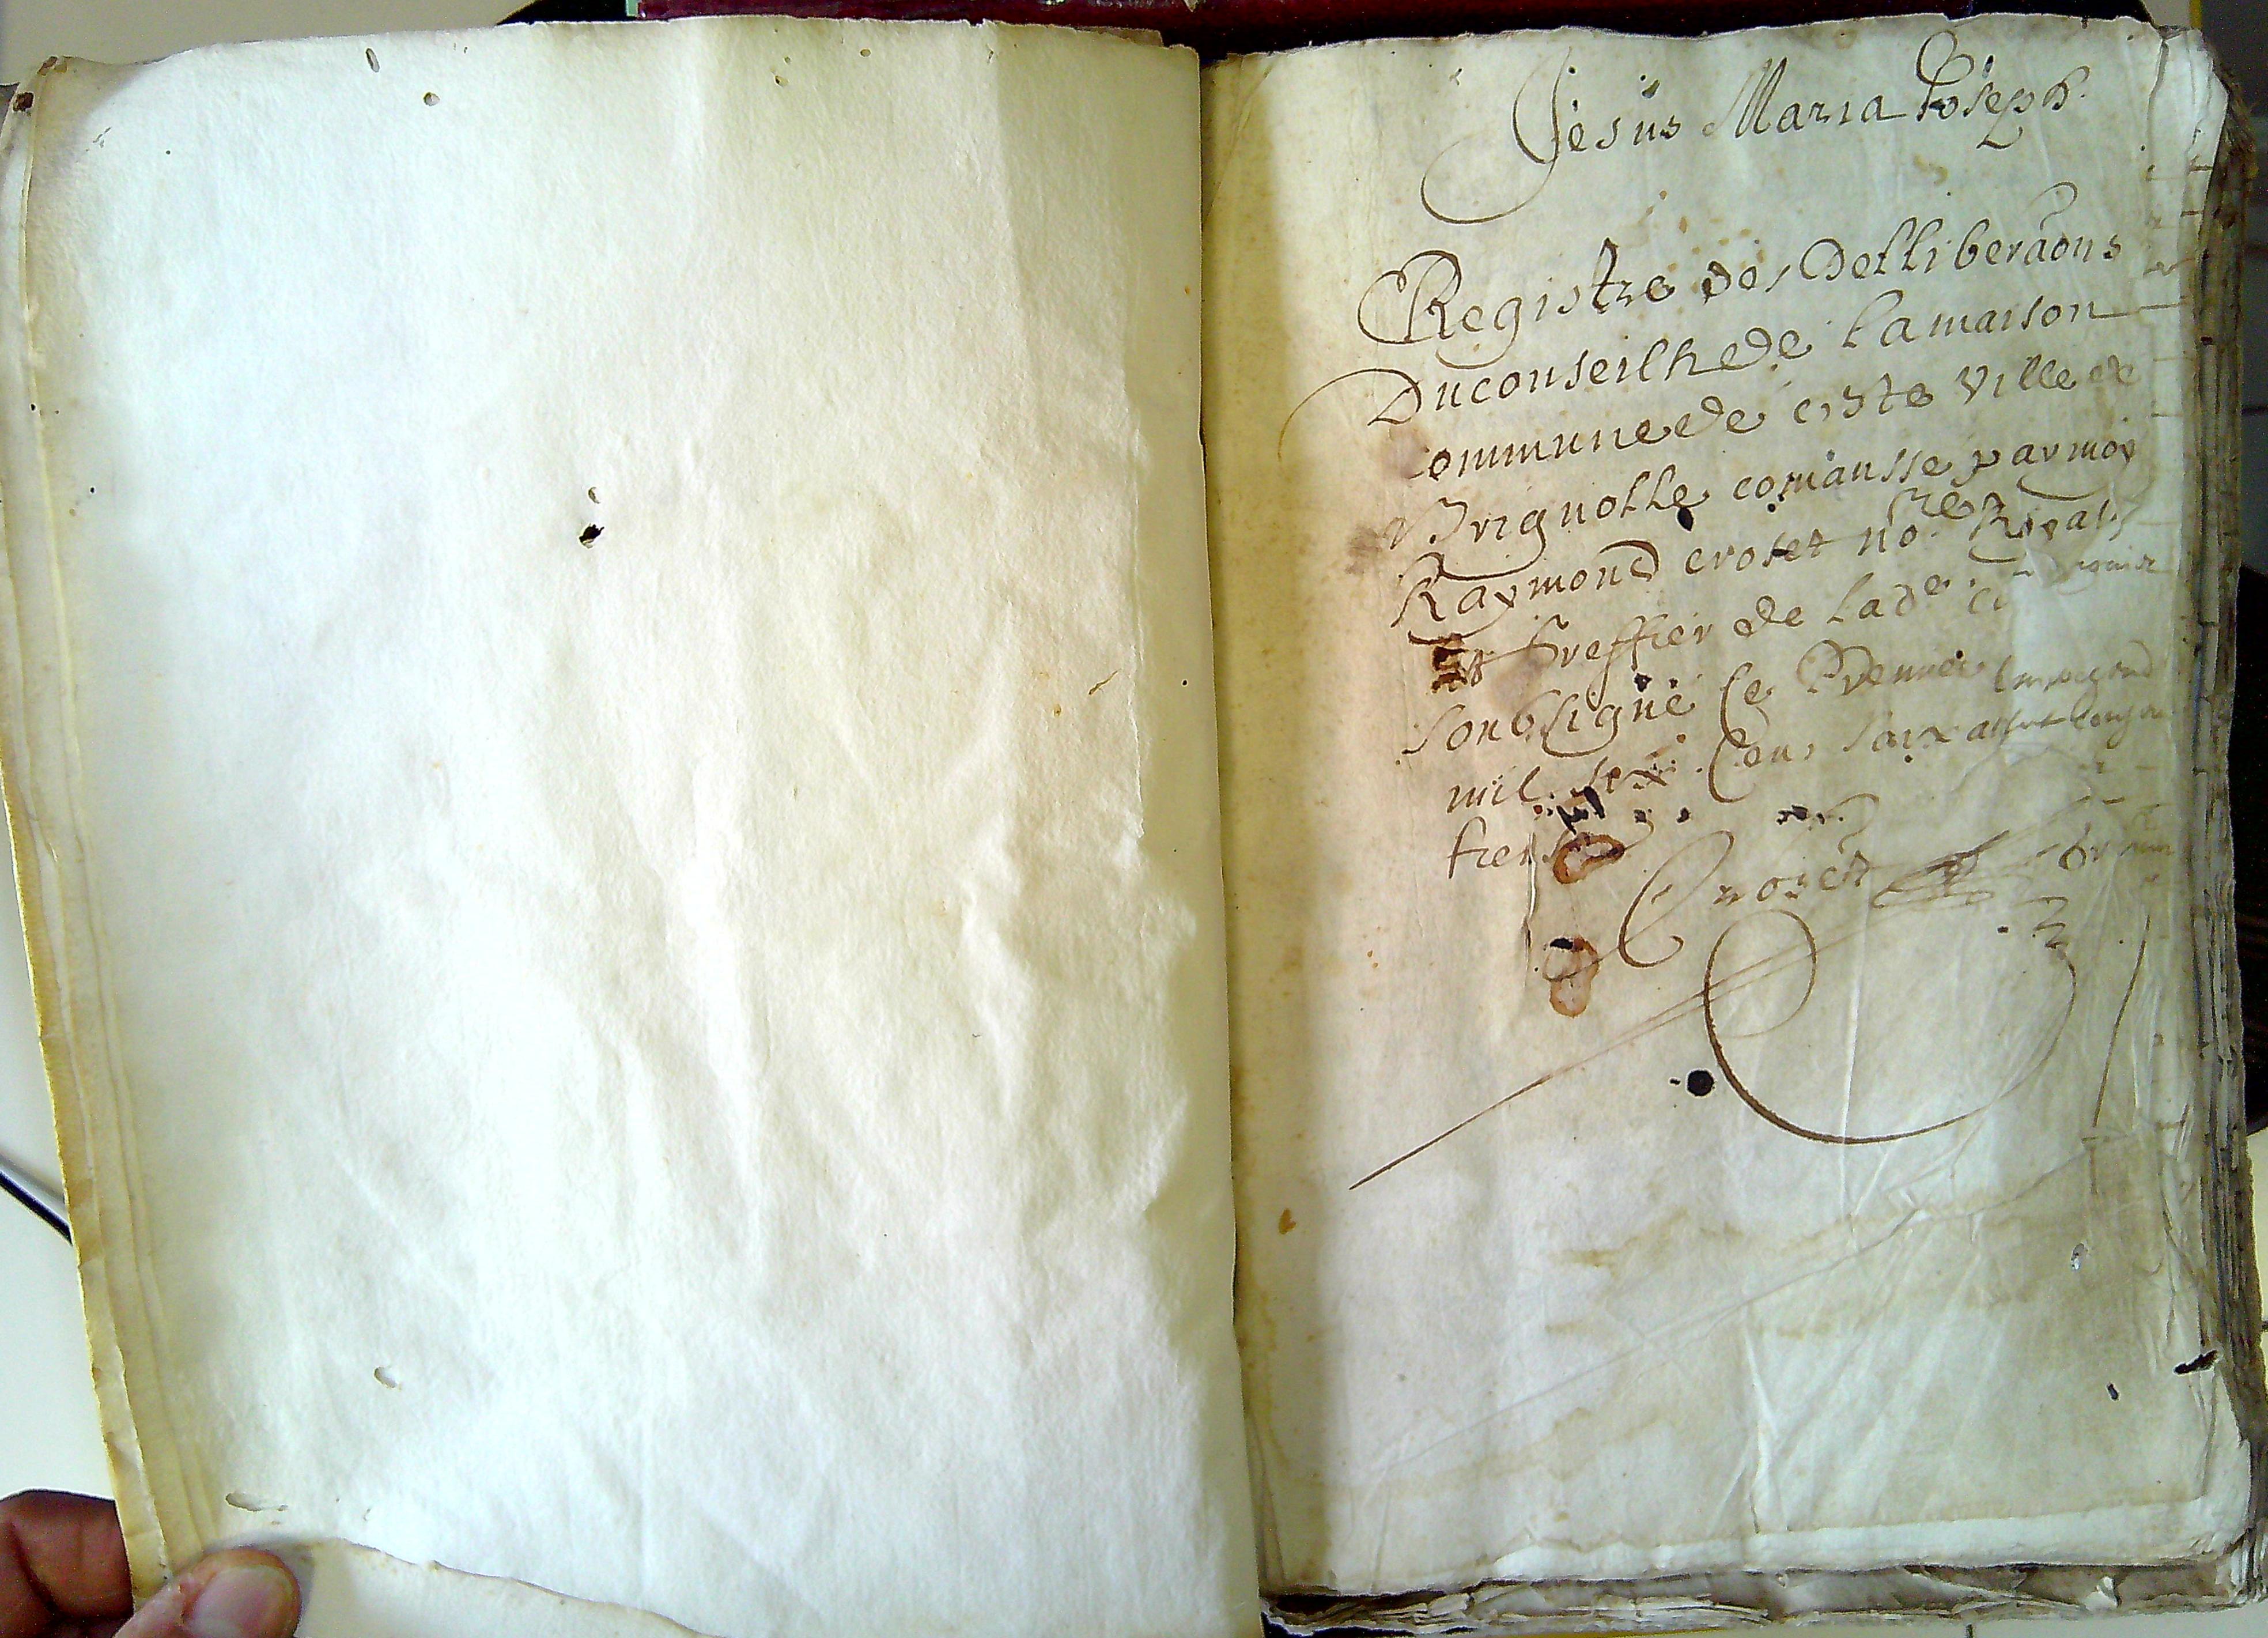 Jesus Maria Joseph
Registre des Delliberaons
Du conseilh de la maison
commune de ceste ville de
Brignolle comansse par moy
Raymond croset no.re Royal
et Greffier de lad.e
soubsigne le Premier
mil six Cens soixante
Croset